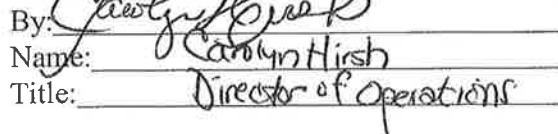 By: Carolyn Hirsh
Name: Carolyn Hirsh
Title: Director of Operations